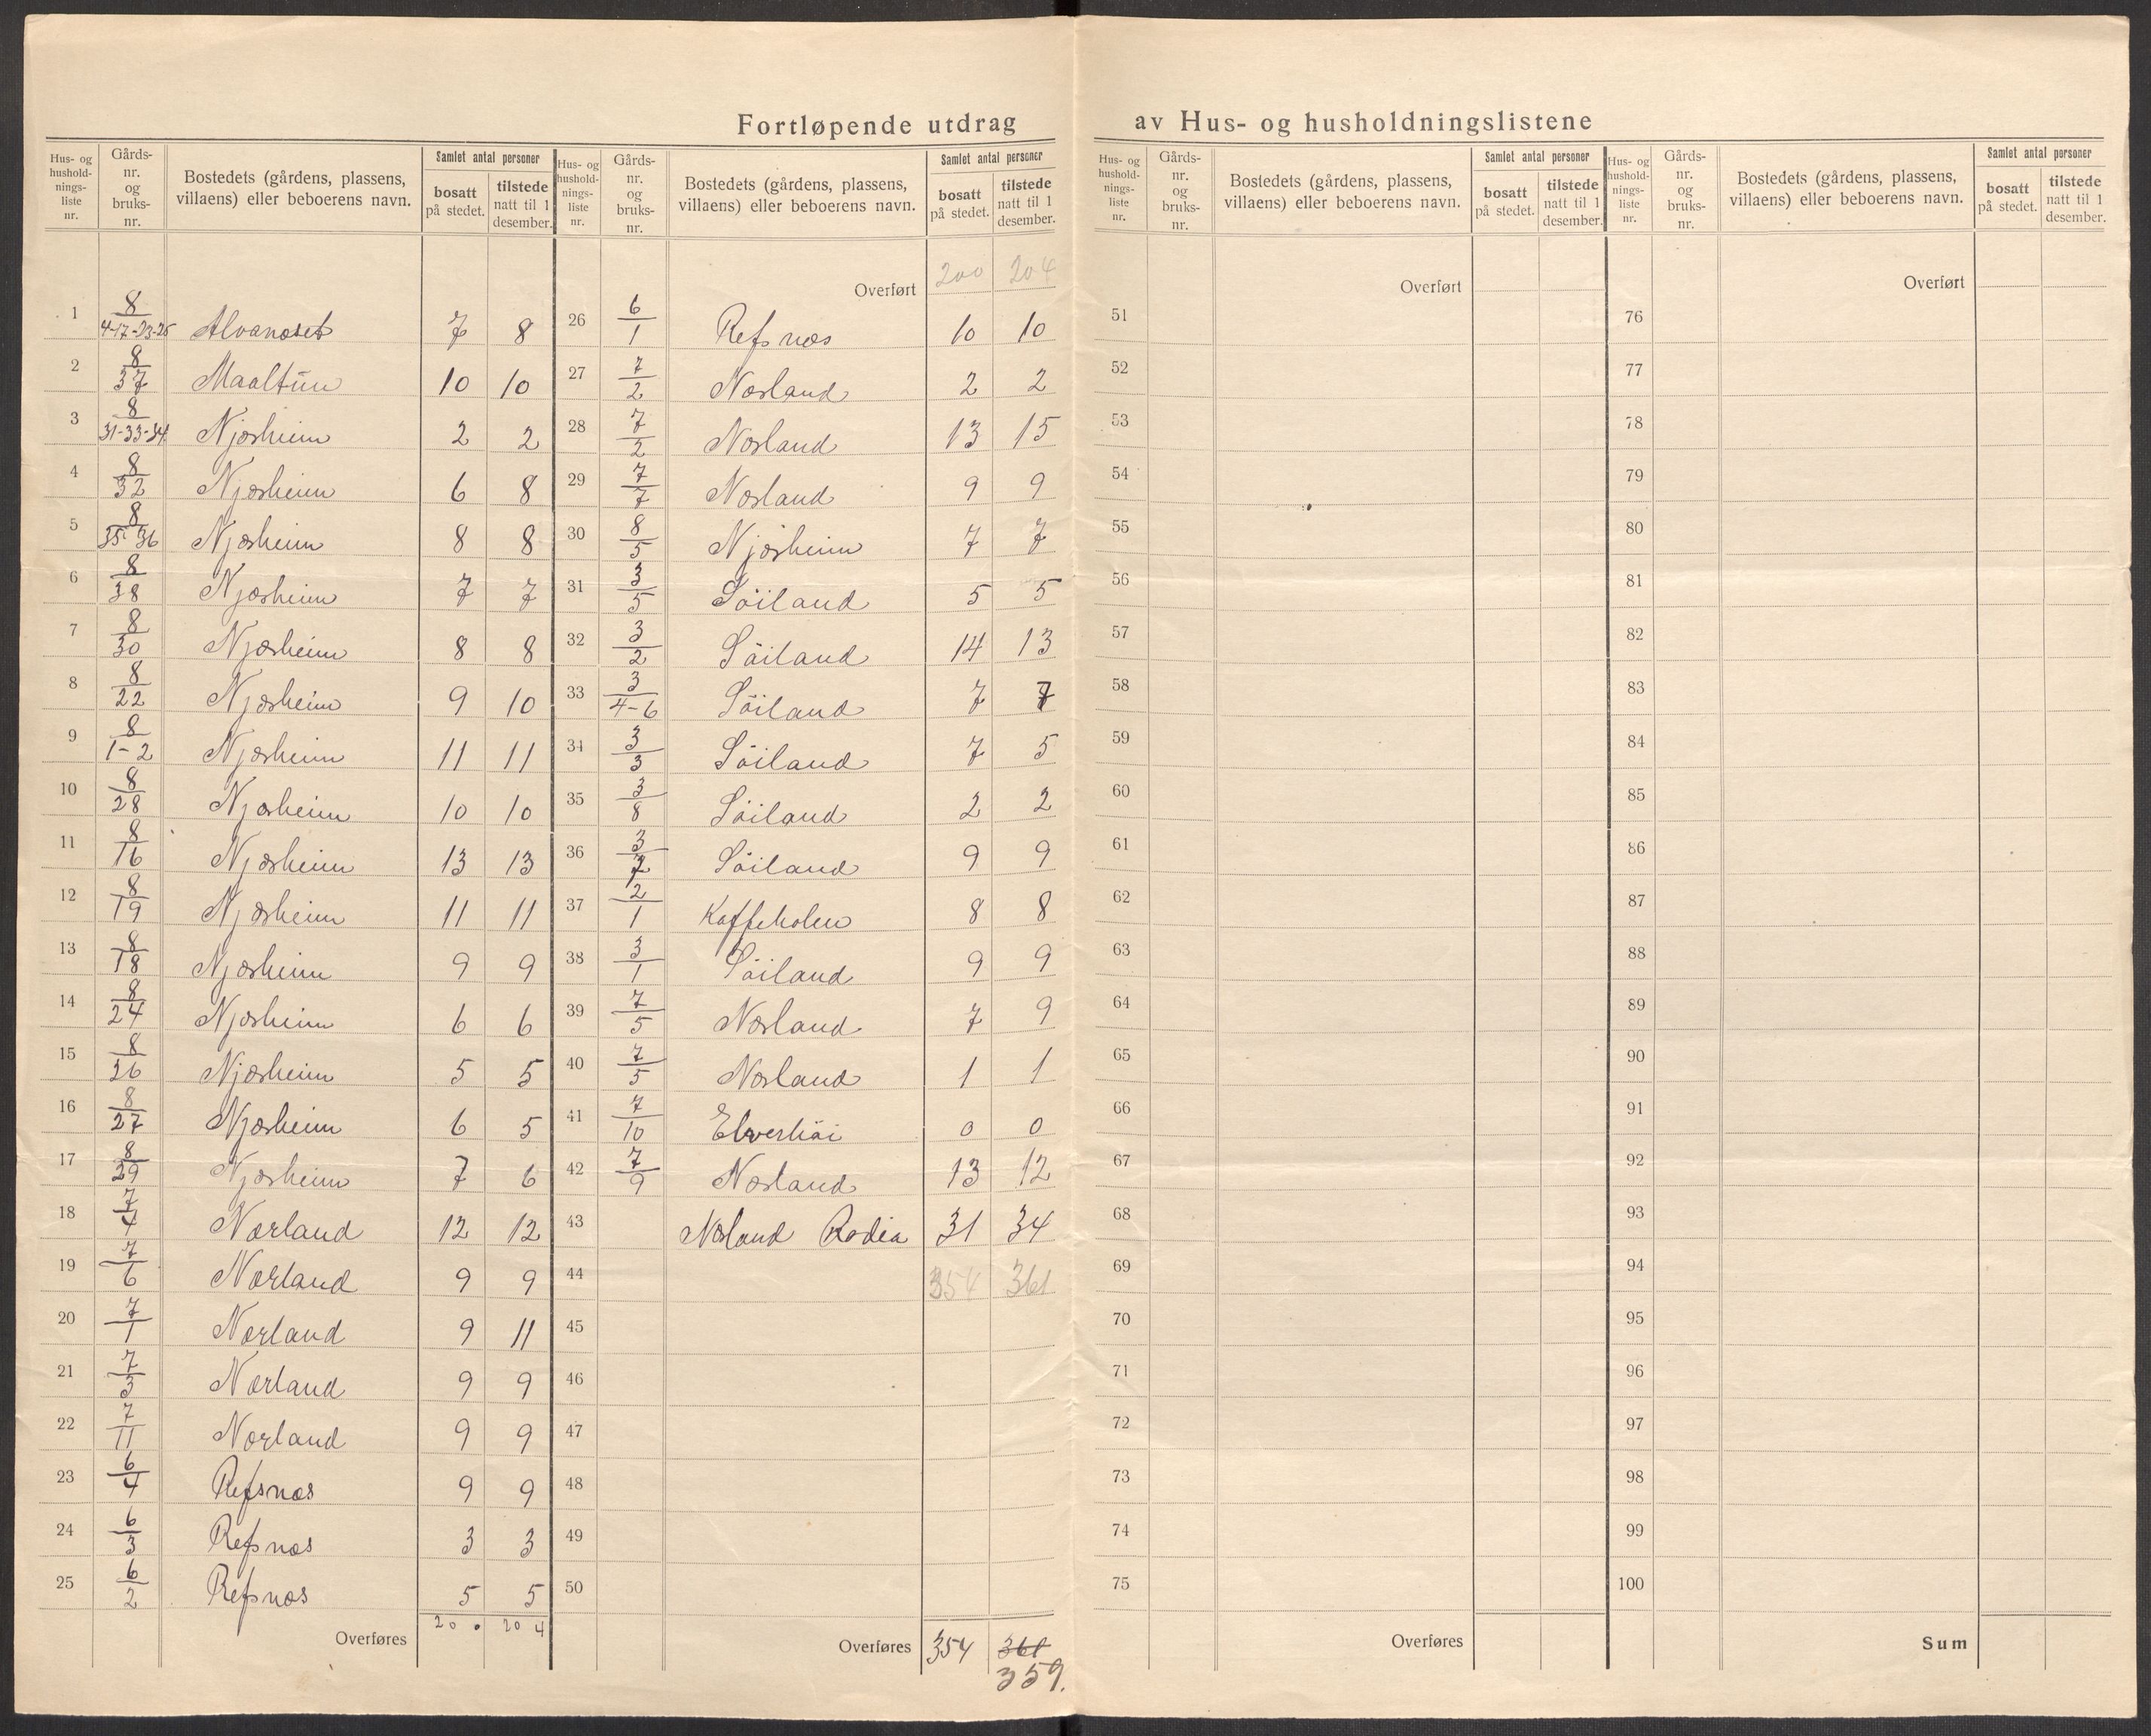 Fortløpende utdrag av Hus- og husholdningslistene
Hus- og hushold-nings-liste nr. Gårds-nr. og bruks-nr. Bostedets (gårdens, plassens, villaens) eller beboerens navn. Samlet antal personer bosatt på stedet. tilstede natt til 1 desember.
1 8/4-17-23-25 Alvanoset 7 8
2 8/37 Maaltun 10 10
3 8/31-33-34 Njærheim 2 2
4 8/32 Njærheim 6 8
5 8/35-36 Njærheim 8 8
6 8/38 Njærheim 7 7
7 8/30 Njærheim 8 8
8 8/22 Njærheim 9 10
9 8/1-2 Njærheim 11 11
10 8/28 Njærheim 10 10
11 8/16 Njærheim 13 13
12 8/19 Njærheim 11 11
13 8/18 Njærheim 9 9
14 8/24 Njærheim 6 6
15 8/26 Njærheim 5 5
16 8/27 Njærheim 6 5
17 8/29 Njærheim 7 6
18 7/4 Nærland 12 12
19 7/6 Nærland 9 9
20 7/1 Nærland 9 11
21 7/3 Nærland 9 9
22 7/11 Nærland 9 9
23 6/4 Refsnæs 9 9
24 6/3 Refsnæs 3 3
25 6/2 Refsnæs 5 5
Overføres 200 204
Hus- og hushold-nings-liste nr. Gårds-nr. og bruks-nr. Bostedets (gårdens, plassens, villaens) eller beboerens navn. Samlet antal personer bosatt på stedet. tilstede natt til 1 desember.
Overført 200 204
26 6/1 Refsnæs 10 10
27 7/2 Nærland 2 2
28 7/2 Nærland 13 15
29 7/7 Nærland 9 9
30 8/5 Njærheim 7 7
31 3/5 Söiland 5 5
32 3/2 Söiland 14 13
33 3/4-6 Söiland 7 7
34 3/3 Söiland 7 5
35 3/8 Söiland 2 2
36 3/7 Söiland 9 9
37 2/1 Kaffeholen 8 8
38 3/1 Söiland 9 9
39 7/5 Nærland 7 9
40 7/5 Nærland 1 1
41 7/10 Elverhöi 0 0
42 7/9 Nærland 13 12
43 Nærland Radio 31 34
44 354 361
45
46
47
48
49
50
Overføres 354 361
359.
Hus- og hushold-nings-liste nr. Gårds-nr. og bruks-nr. Bostedets (gårdens, plassens, villaens) eller beboerens navn. Samlet antal personer bosatt på stedet. tilstede natt til 1 desember.
Overført
51
52
53
54
55
56
57
58
59
60
61
62
63
64
65
66
67
68
69
70
71
72
73
74
75
Overføres
Hus- og hushold-nings-liste nr. Gårds-nr. og bruks-nr. Bostedets (gårdens, plassens, villaens) eller beboerens navn. Samlet antal personer bosatt på stedet. tilstede natt til 1 desember.
Overført
76
77
78
79
80
81
82
83
84
85
86
87
88
89
90
91
92
93
94
95
96
97
98
99
100
Sum